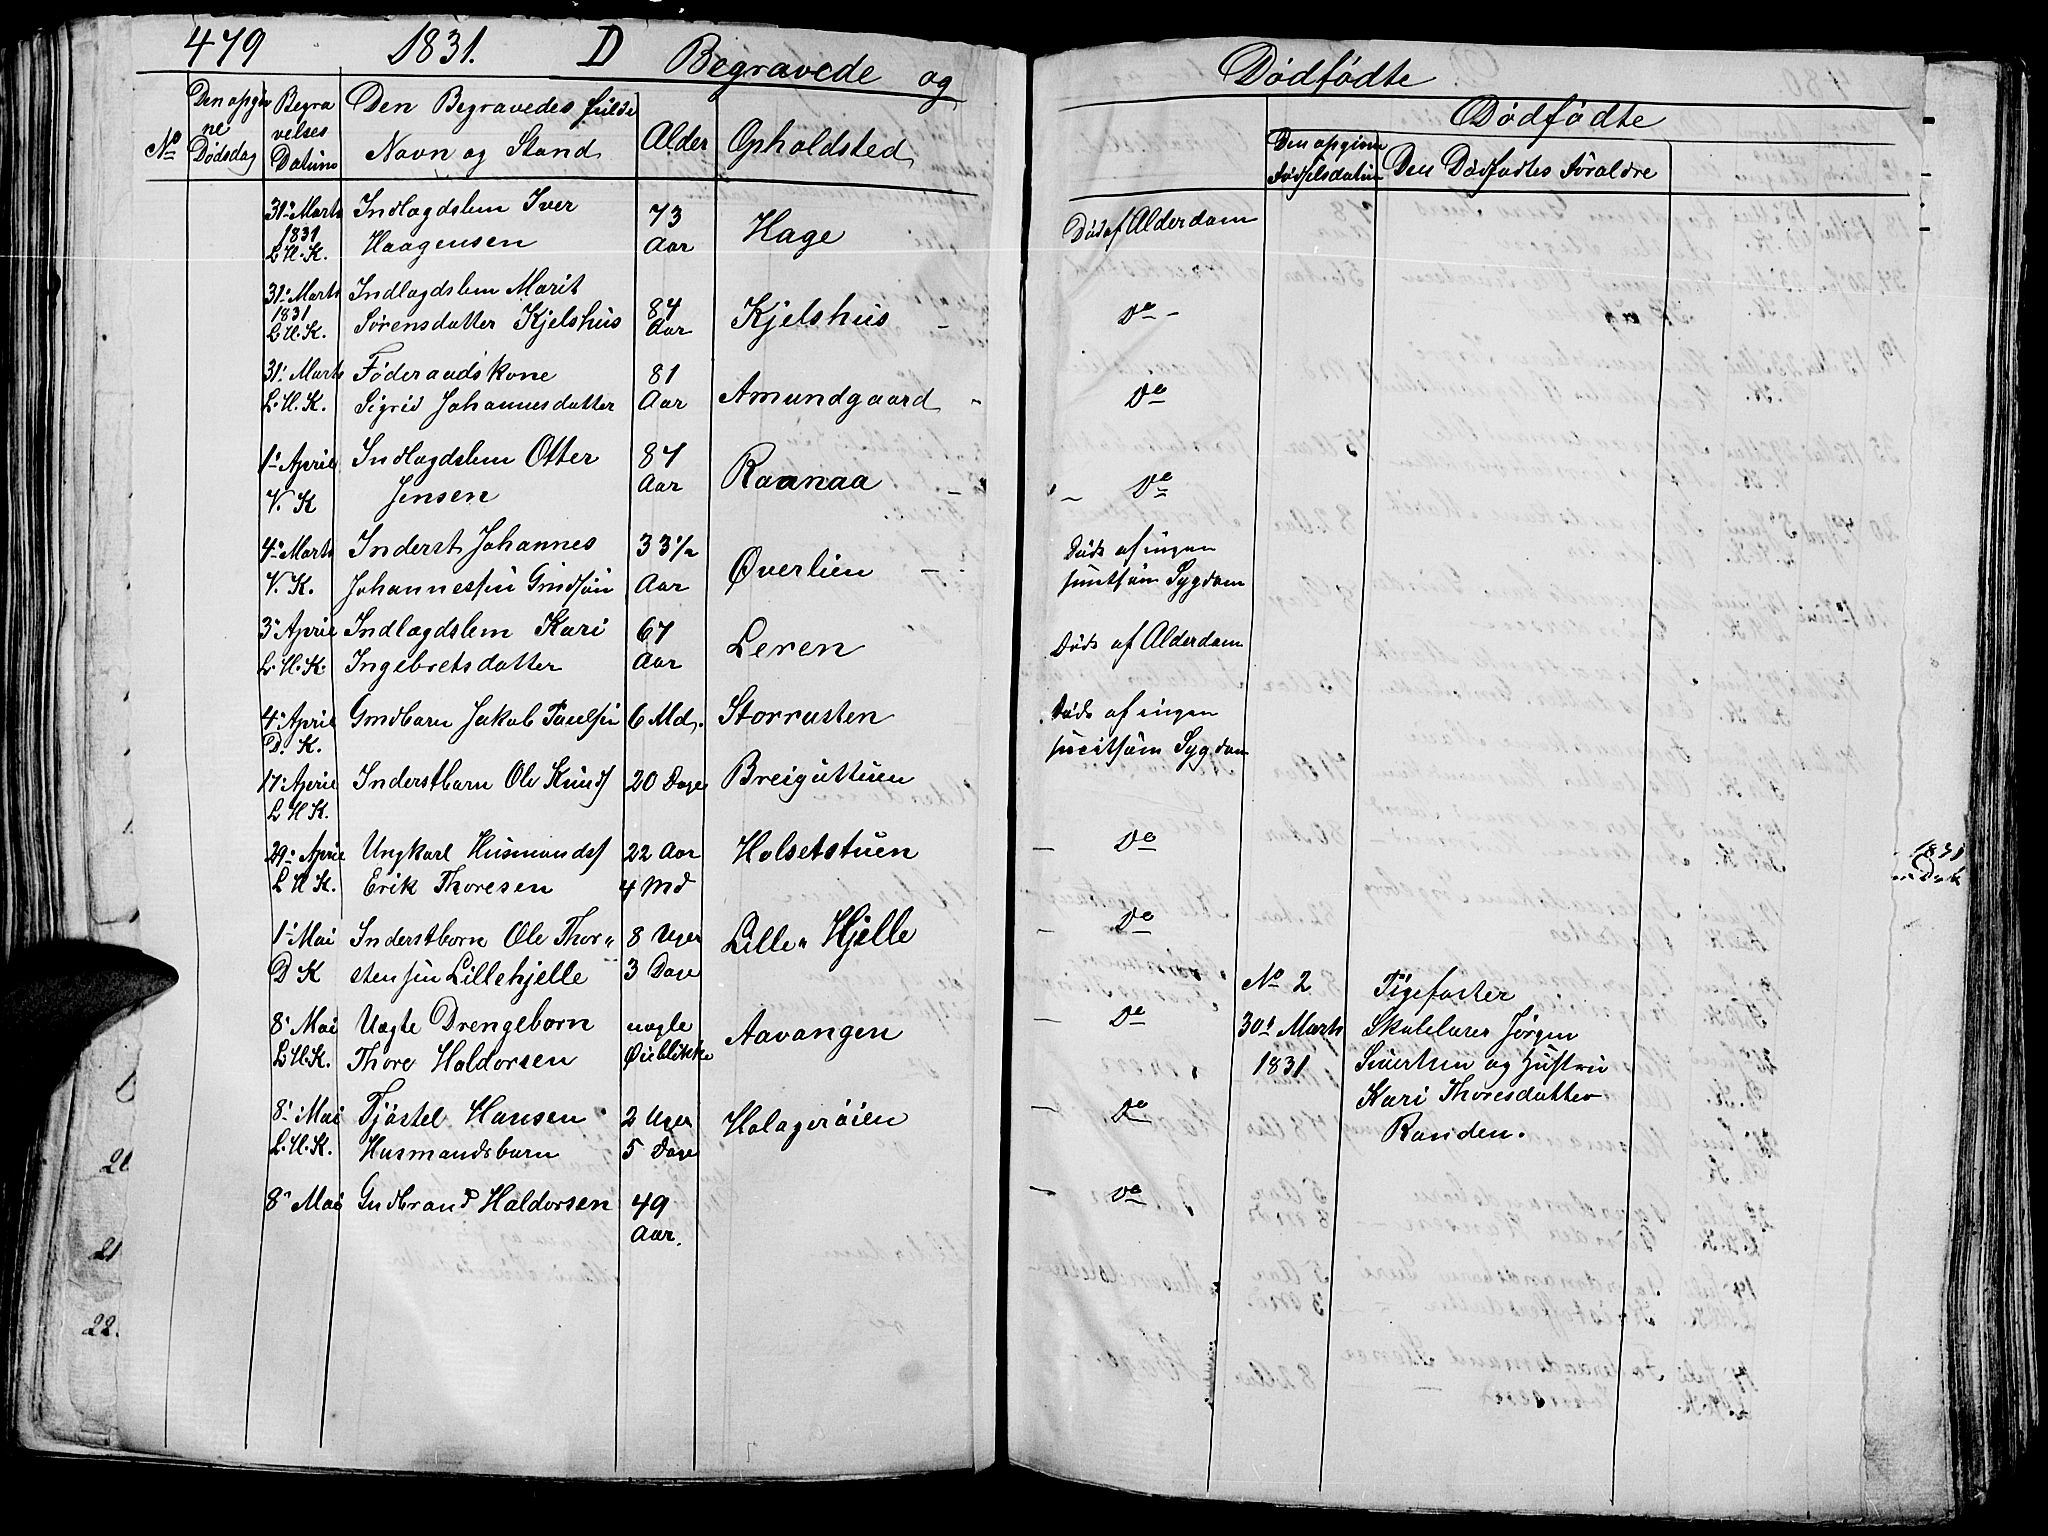 479 1831. D Begravede og
No
Den opgiv
ne
Dødsdag
Begra
velses
Datum
Den Begravedes fulde
Navn og Stand
Alder
Opholdsted
31. Marts Indlægdslem Iver 73
1831
L. H. K. Haagensen Aar Hage
31. Marts Indlægdslem Marit
1831 84
L. H. K. Sørensdatter Kjelshus Aar Kjelshus
31. Marts Føderaadskone 81
L. H. K. Sigrid Johannesdatter Aar Amundgaard
1. April Indlægdslem Otter 87
V. K Jensen Aar Raanaa
4. Marts Inderst Johannes 33½
V. K. Aar Øverlien
3. April Indlægdslem Kari 67
L. H. K. Ingebretsdatter Aar Leren
4. April Jakob 6 Md. Storrusten
D. K.
17. April Inderstbarn Ole 20 Dage Breiguttuen
L H K.
29. April Ungkarl Husmands 22 Aar Holsetstuen
L H K. Erik Thoresen 4 Md
1. Mai Inderstbarn Ole Thor" 8 Uger Lille" Hjelle
D K sten Lillehjelle 3 Dage
8. Mai Uægte Drengebarn nogle Aavangen
L. H. K. Thore Haldorsen Øieblikke
8. Mai Tjøstel Hansen 2 Uger Holagerøien
L. H. K. Husmandsbarn 5 Dage
8. Mai Gudbrand Haldorsen 49
Aar.
Dødfødte
Dødfødte
Den opgivne
Fødselsdatum
Den Dødfødtes Forældre
Død af Alderdom
Do -
Do
- Do
Død af ingen
Sygdom
Død af Alderdom
Død af ingen
Sygdom
- Do
- Do
- Do
- Do
- Do
No 2
30. Marts
1831
Pigefoster
Skolelærer Jørgen
Sivertsen og Hustru
Kari Thoresdatter
Randen.
1831
21
21
22.